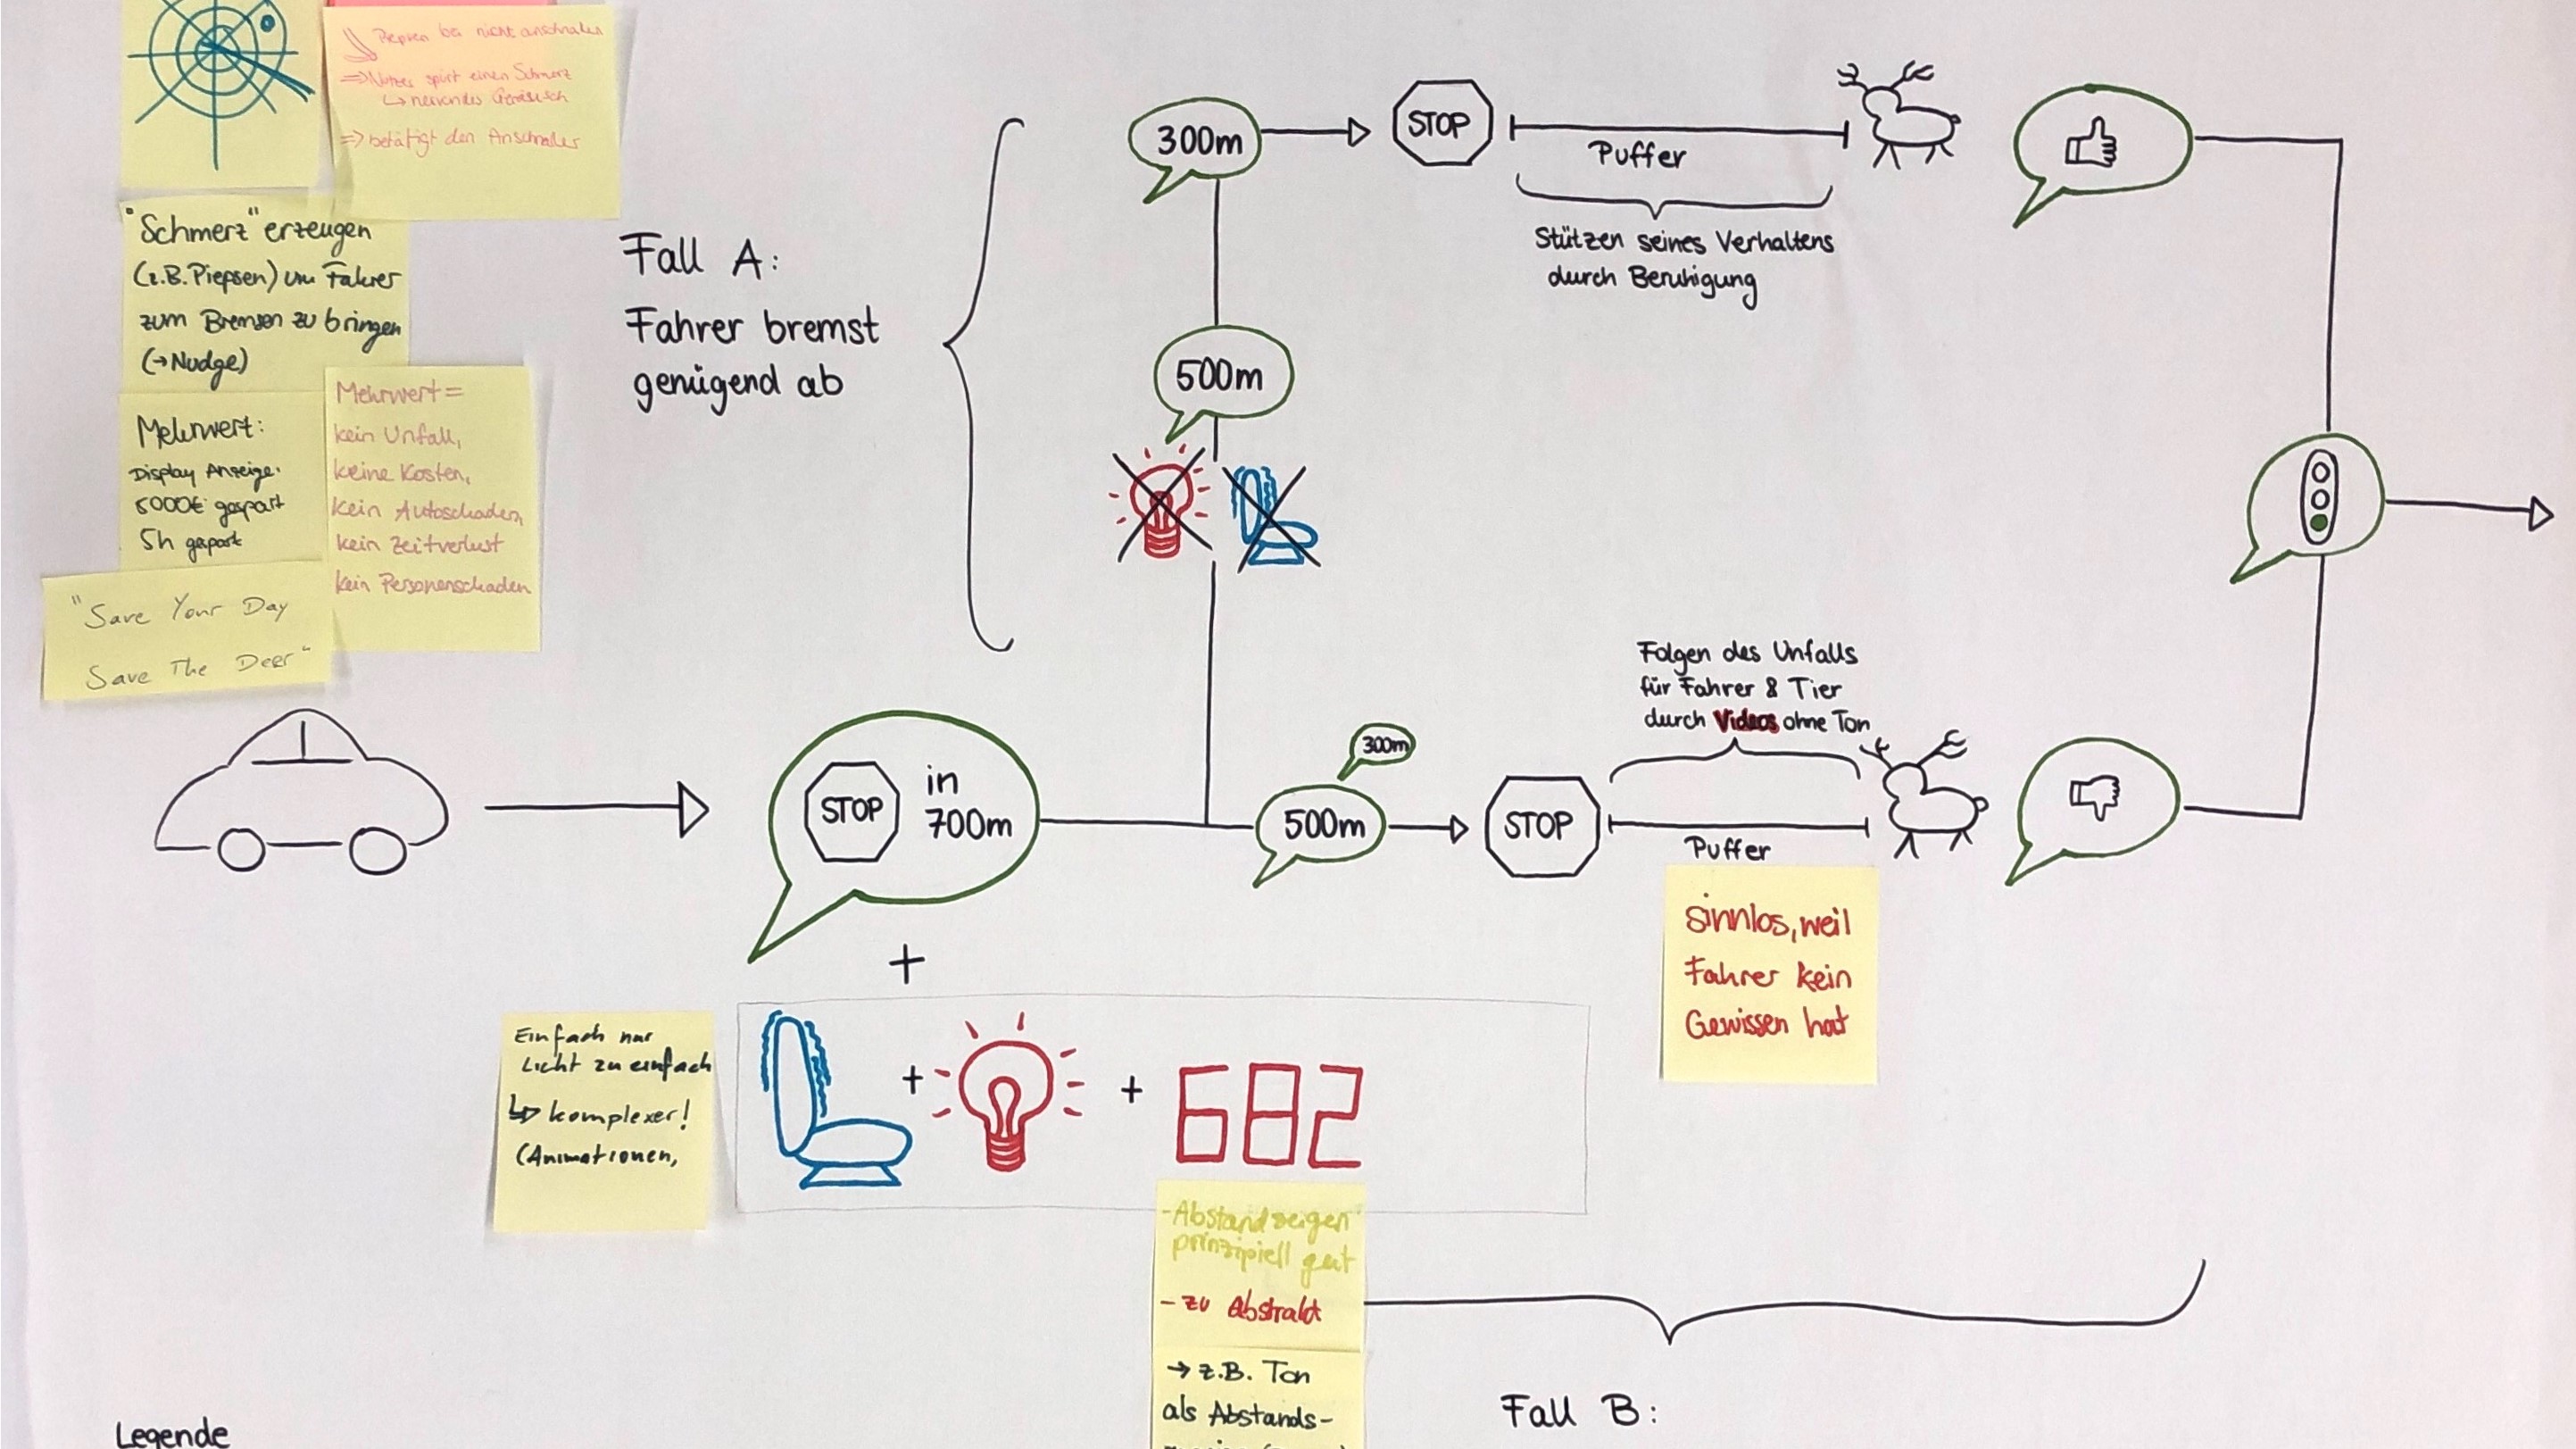 Piepsen bei nicht anschnallen
=> Nutzer spürt einen Schmerz
↳ nervendes Geräusch
=> betätigt den Anschnaller
"Schmerz" erzeugen
(z.B. Piepsen) um Fahrer
zum Bremsen zu bringen
(→ Nudge)
Mehrwert:
Display Anzeige:
5000€ gespart
5h gespart
Mehrwert =
kein Unfall,
keine Kosten,
kein Autoschaden,
kein Zeitverlust
kein Personenschaden
"Save Your Day
Save The Deer"
Fall A:
Fahrer bremst
genügend ab
300m
STOP
Puffer
Stützen seines Verhaltens
durch Beruhigung
500m
STOP
in
700m
300m
500m
STOP
Folgen des Unfalls
für Fahrer & Tier
durch Videos ohne Ton
Puffer
sinnlos, weil
Fahrer kein
Gewissen hat
+
Einfach nur
Licht zu einfach
↳ komplexer!
(Animationen,
+ + 682
- Abstand zeigen
prinzipiell gut
- zu Abstrakt
→ z.B. Ton
als Abstands-
Fall B:
Legende